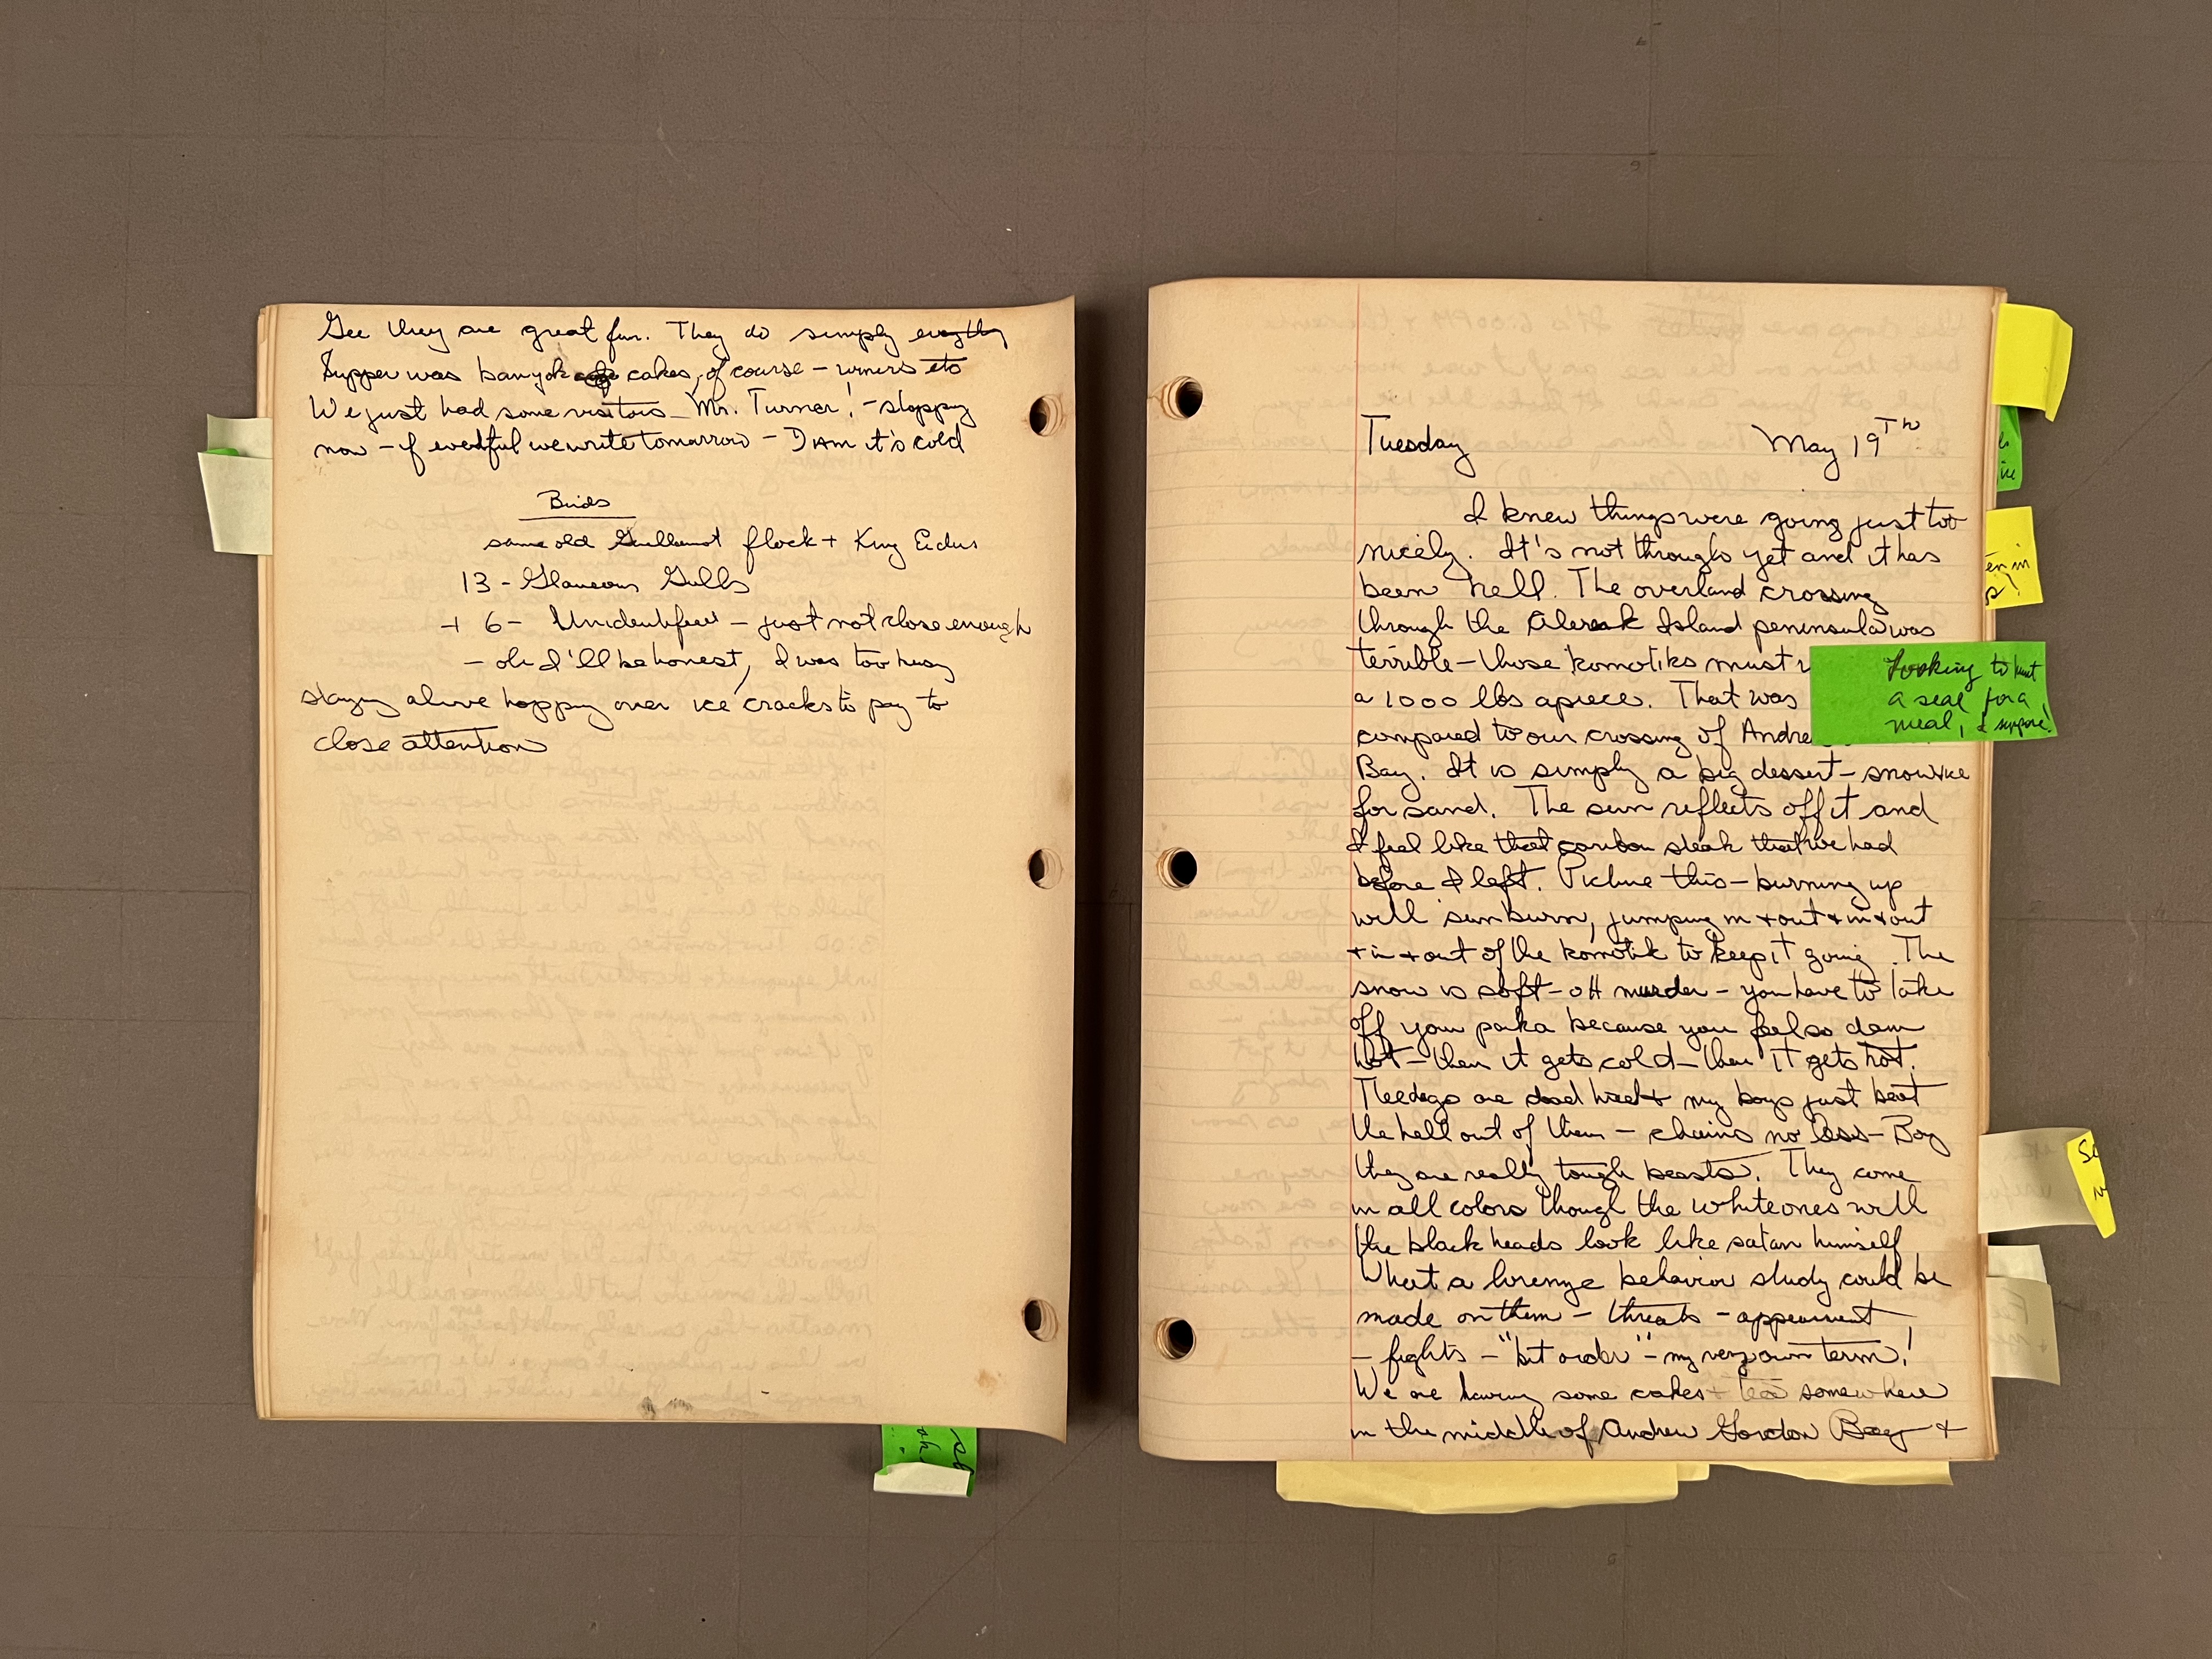 Gee they are great fun. They do simply everything
Supper was banyok cakes, of course - etc
We just had some visitors - Mr. Turner! - stopping
now - if eventful we write tomorrow - DAM it's cold
Birds
same old Guillemot flock + King Eiders
13 - Glaucous Gulls
+ 6 - Unidentified - just not close enough
- oh I'll be honest, I was too busy
staying alive hopping over ice cracks to pay to
close attention
Tuesday May 19Th
I knew things were going just too
nicely. It's not through yet and it has
been hell. The overland crossing
through the Island peninsula was
terrible - those komotiks must
a 1000 lbs apiece. That was
compared to our crossing of Andre
Bay. It is simply a big dessert - snow+ice
for sand. The sun reflects off it and
I feel like that caribou steak that we had
before I left. Picture this - burning up
with sunburn, jumping in + out + in + out
+ in + out of the komotik to keep it going. The
snow is soft - oH murder - you have to take
off your parka because you feel so dam
hot - then it gets cold - then it gets hot.
The dogs are dead tired + my boys just beat
the hell out of them - chains no less - Boy
they are really tough beasts. They come
in all colors though the white ones with
the black heads look like satan himself
What a behavior study could be
made on them - threats - appeasment
- fights - "bit order" - my very own term!
We are having some cakes + tea somewhere
in the middle of Andrew Gordon Bay +
Looking to hunt
a seal for a
meal, I suppose!
en in